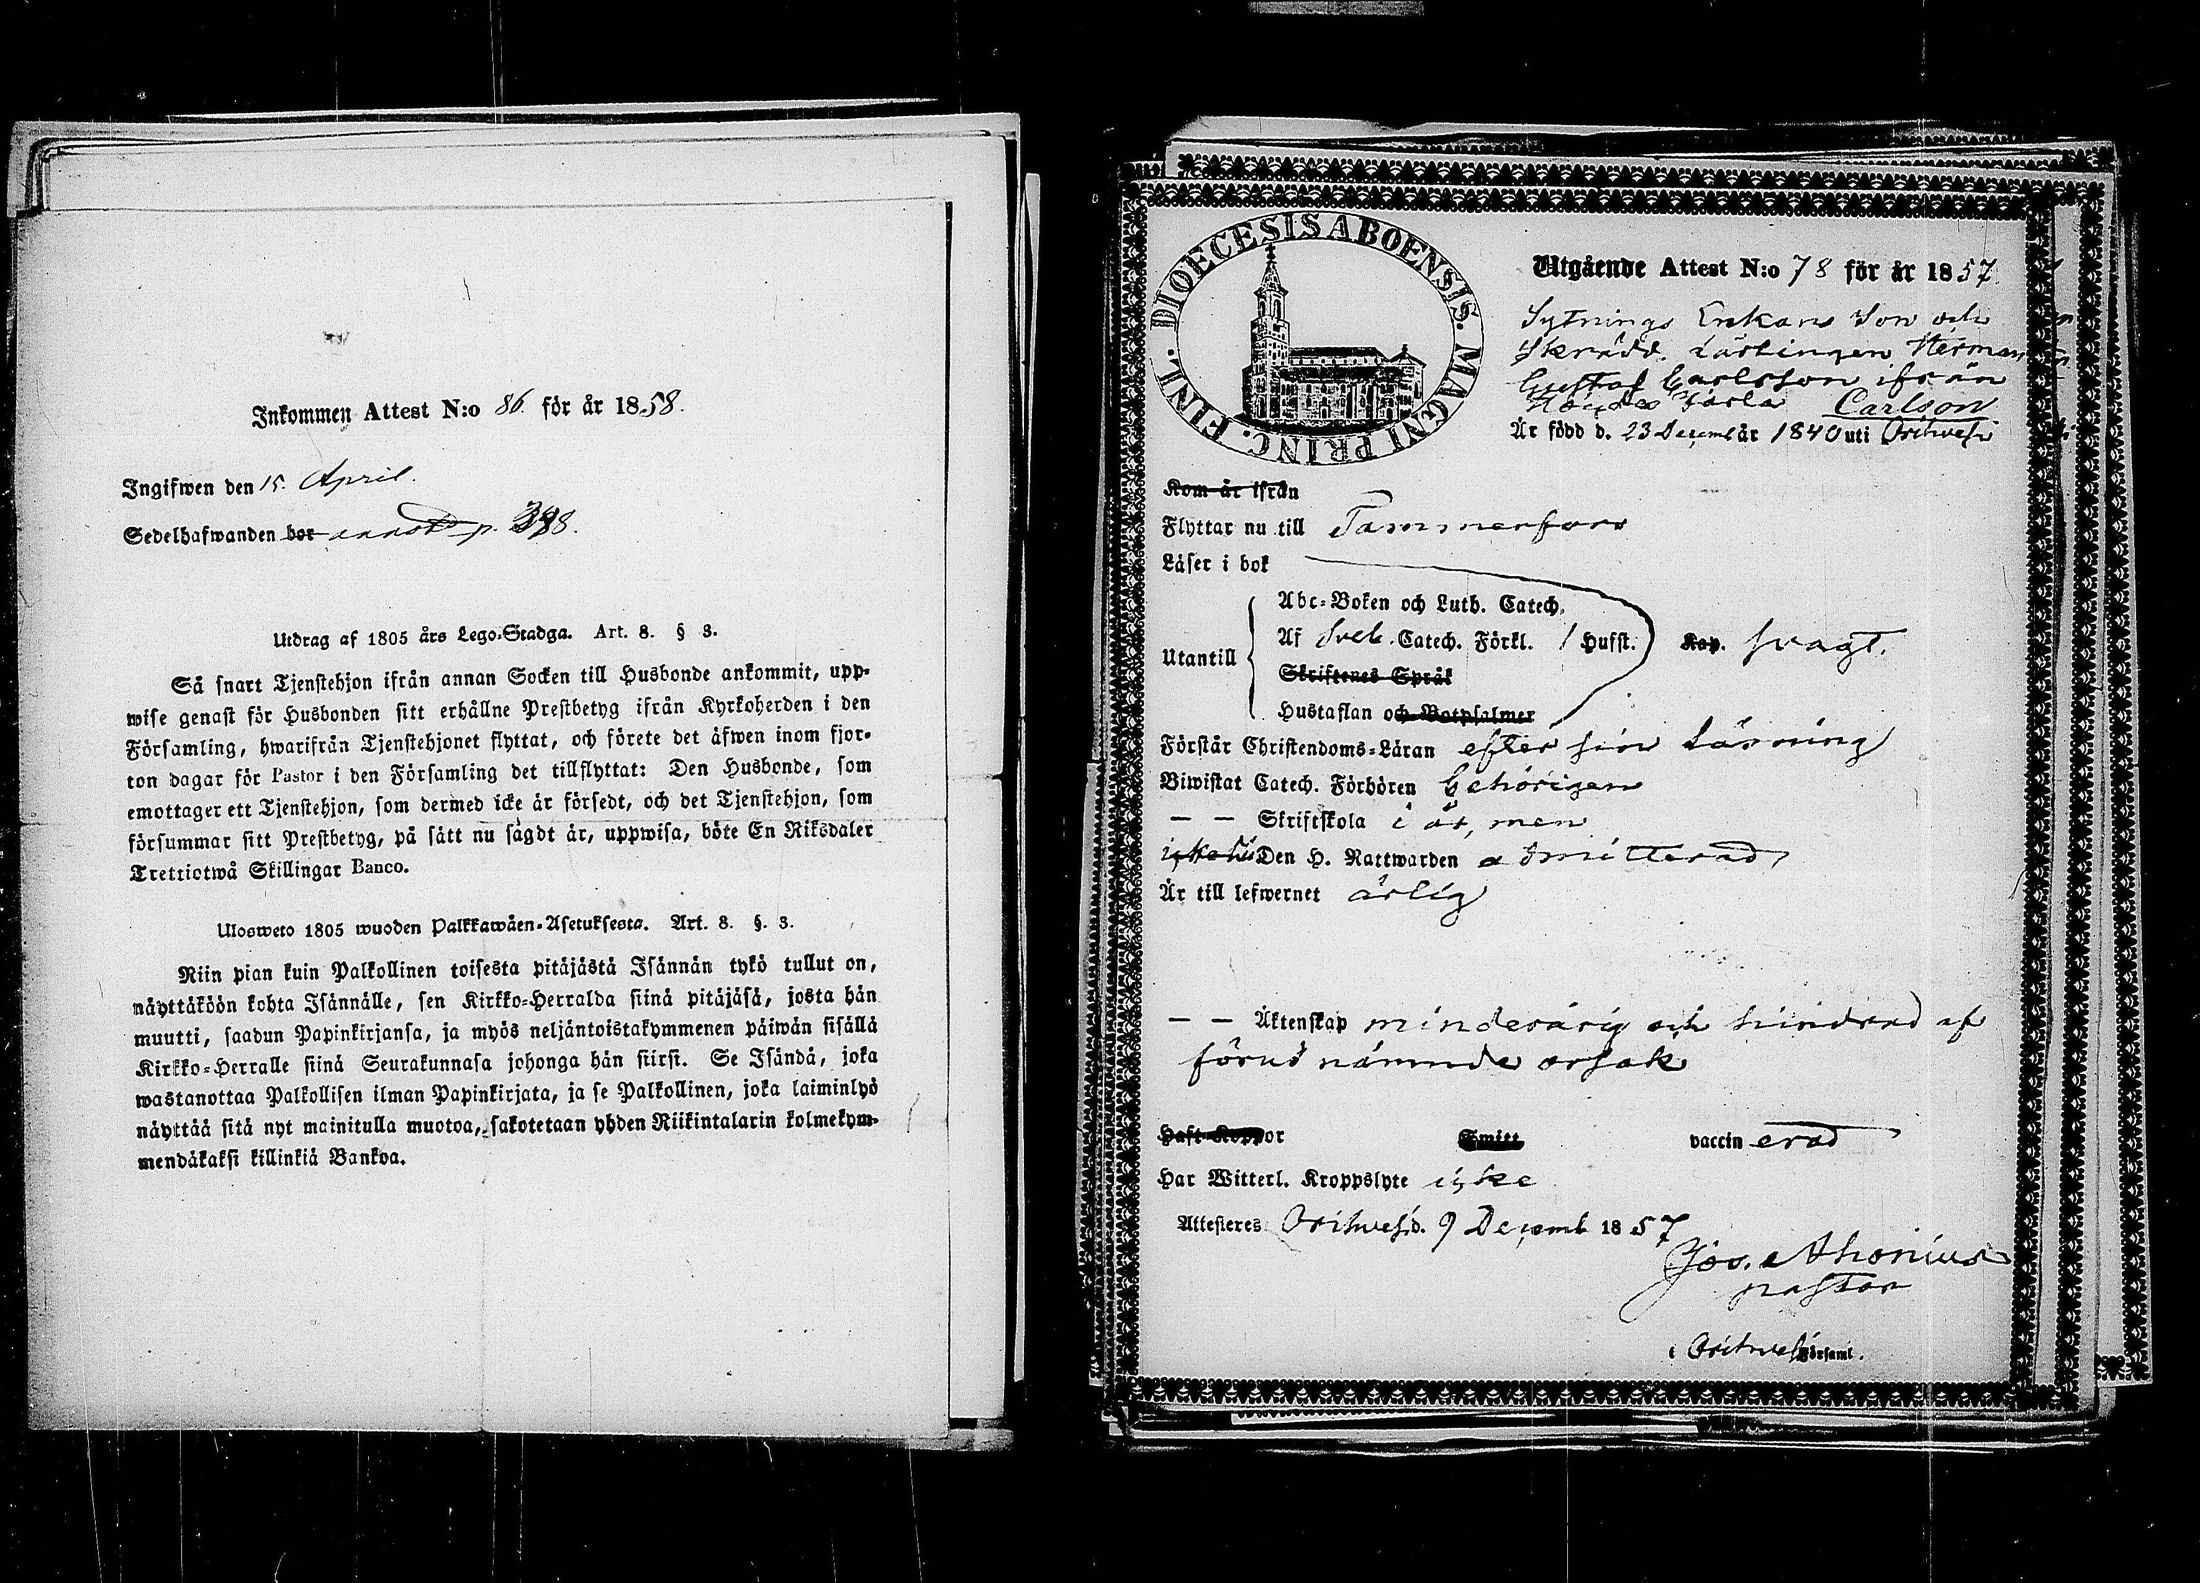 Inkommen Attest N:o 86. för år 1858.
Ingifwen den 15. April.
Sedelhafwanden bor annot. p. 398.
Utdrag af 1805 års Lego-Stadga. Art. 8. § 3.
Så snart Tjenstehjon ifrån annan Socken till Husbonde ankommit, upp-
wise genast för Husbonden sitt erhållne Prestbetyg ifrån Kyrkoherden i den
Församling, hwarifrån Tjenstehjonet flyttat, och förete det äfwen inom fjor-
ton dagar för Pastor i den Församling det tillflyttat: Den Husbonde, som
emottager ett Tjenstehjon, som dermed icke är försedt, och det Tjenstehjon, som
försummar sitt Prestbetyg, på sätt nu sägdt är, uppwisa, böte En Riksdaler
Trettiotwå Skillingar Banco.
Ulosweto 1805 wuoden Palkkawäen-Asetuksesta. Art. 8. §. 3.
Niin pian kuin Palkollinen toisesta pitäjästä Isännän tykö tullut on,
näyttäköön kohta Isännälle, sen Kirkko-Herralda siinä pitäjäsä, josta hän
muutti, saadun Papinkirjansa, ja myös neljäntoistakymmenen päiwän sisällä
Kirkko-Herralle siinä Seurakunnasa johonga hän siirsi. Se Isändä, joka
wastanottaa Palkollisen ilman Papinkirjata, ja se Palkollinen, joka laiminlyö
näyttää sitä nyt mainitulla muotoa, sakotetaan yhden Riikintalarin kolmekym-
mendäkaksi killinkiä Bankoa.
DIOECESIS ABOENSIS. MAGNI PRINC. FINL.
Utgående Attest N:o 78 för år 1857.
Sytnings Enkans Son och
Skrädd. Lärlingen Herman
Gustaf Carlsson ifrån
Carlson
Är född d. 23 Decemb år 1840 uti Orihvesi
Kom år ifrån
Flyttar nu till Tammerfors
Läser i bok
Abc-Boken och Luth. Catech.
Utantill
Af Sveb. Catech. Förkl. 1 Hufst. Kap. svagt.
Skriftenes Språk
Hustaflan och Botpsalmer
Förstår Christendoms-Läran efter sin Läsning
Biwistat Catech. Förhören behörigen
— — Skriftskola i år, men
icke till Den H. Nattwarden admitterad,
Är till lefwernet ärlig
— — Äktenskap minderårig och hindrad af
förut nämnde orsak
Haft Koppor Smitt vaccin erad
Har Witterl. Kroppslyte icke
Attesteres Orihvesi d. 9 Decemb 1857
Jos. Ahonius
pastor
i Orihvesi Församl.